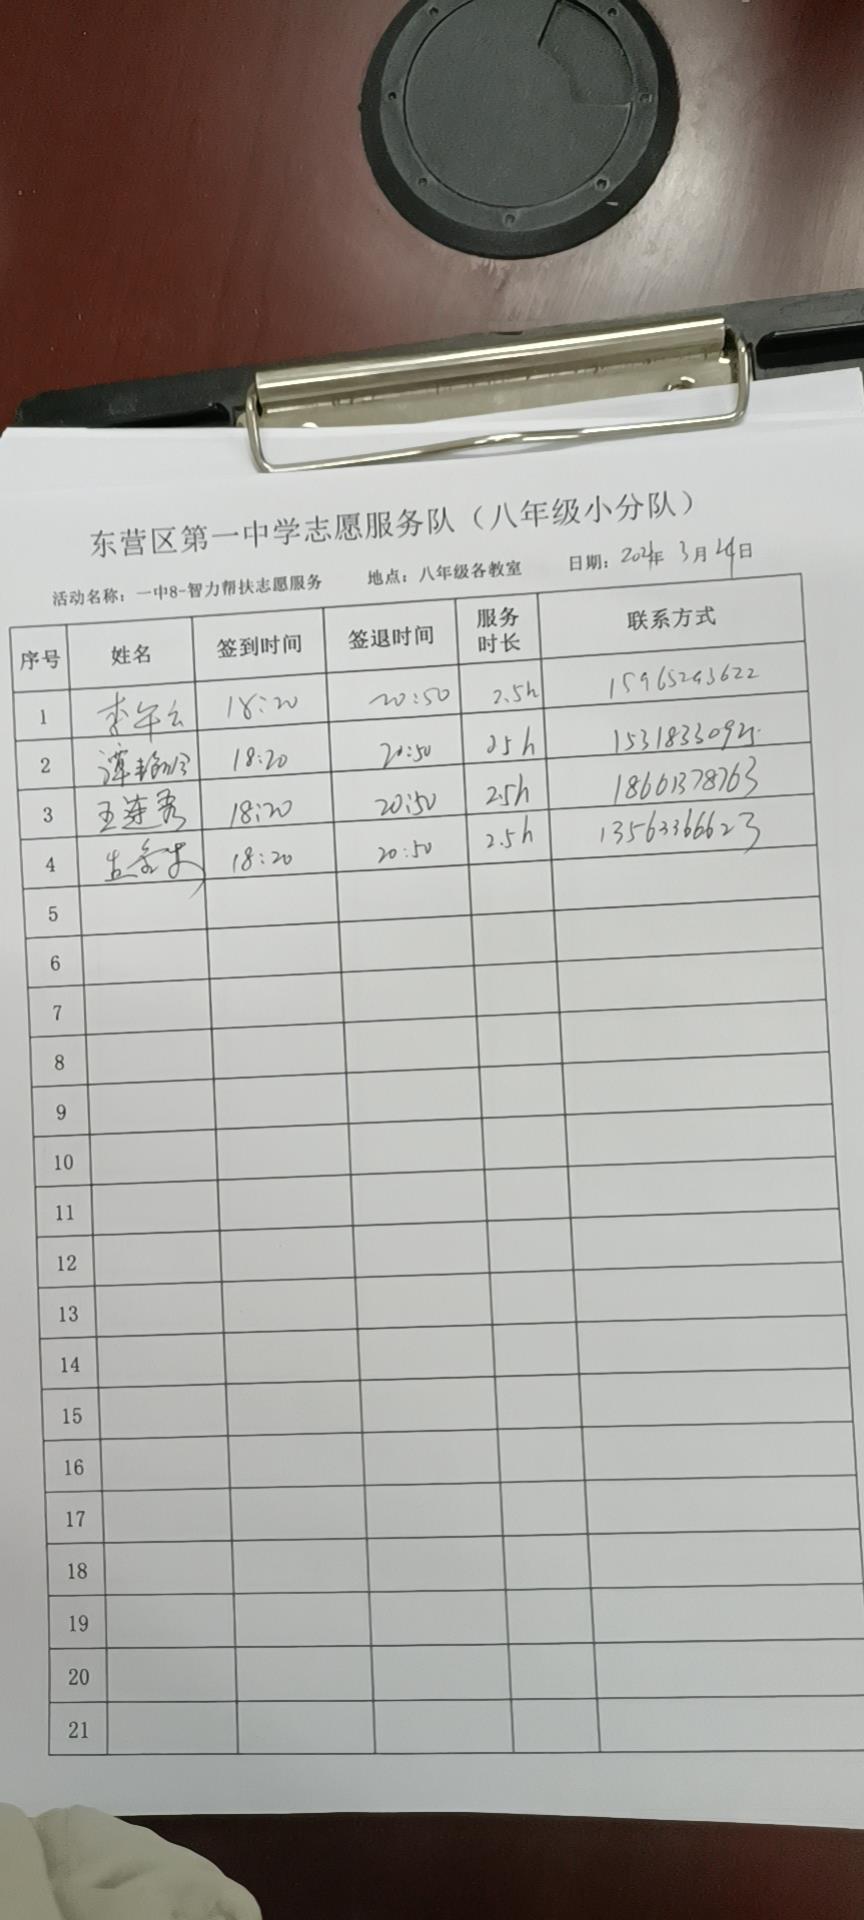 东营区第一中学志愿服务队（八年级小分队）
活动名称：一中8-智力帮扶志愿服务 地点：八年级各教室 日期：2024年 3月24日
序号 姓名 签到时间 签退时间 服务时长 联系方式
1 李午云 18:20 20:50 2.5h 15965293622
2 谭 18:20 20:50 2.5h
3 王莲秀 18:20 20:50 2.5h 18661378763
4 18:20 20:50 2.5h 13563366623
5
6
7
8
9
10
11
12
13
14
15
16
17
18
19
20
21